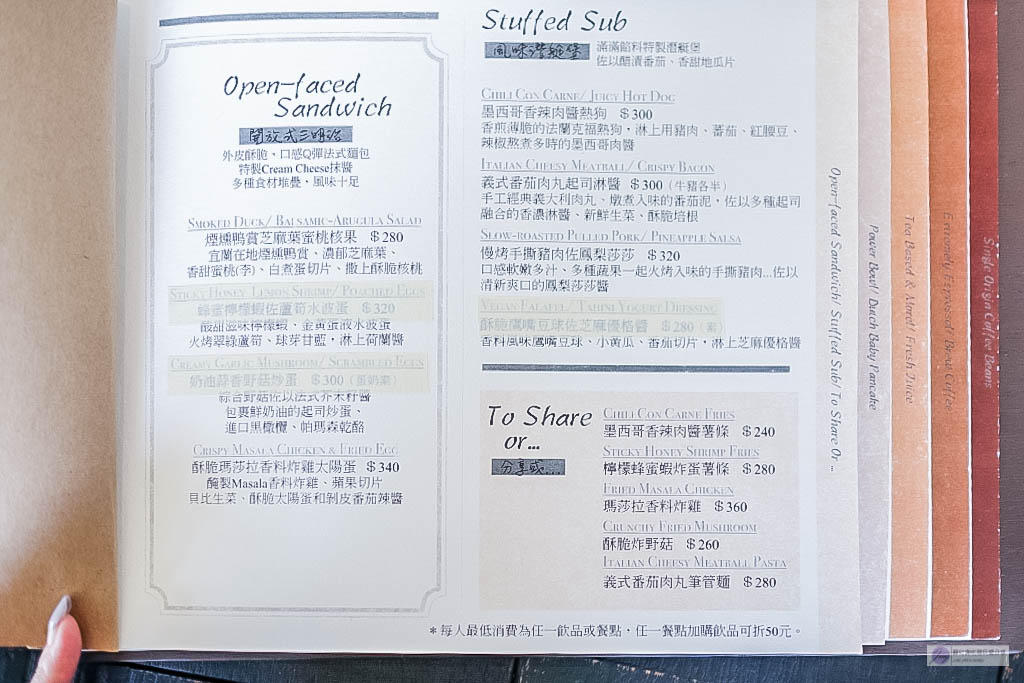 Open-faced
Sandwich
開放式三明治
外皮酥脆、口感Q彈法式麵包
特製Cream Cheese抹醬
多種食材堆疊，風味十足
Smoked Duck/ Balsamic-Arugula Salad
煙燻鴨賞芝麻葉蜜桃核果 $280
宜蘭在地煙燻鴨賞、濃郁芝麻葉、
香甜蜜桃(李)、白煮蛋切片、撒上酥脆核桃
Sticky Honey Lemon Shrimp/ Poached Eggs
蜂蜜檸檬蝦佐蘆筍水波蛋 $320
酸甜滋味檸檬蝦、金黃蛋液水波蛋
火烤翠綠蘆筍、球芽甘藍，淋上荷蘭醬
Creamy Garlic Mushroom/ Scrambled Eggs
奶油蒜香野菇炒蛋 $300 (蛋奶素)
綜合野菇佐以法式芥末籽醬
包裹鮮奶油的起司炒蛋、
進口黑橄欖、帕瑪森乾酪
Crispy Masala Chicken & Fried Egg
酥脆瑪莎拉香料炸雞太陽蛋 $340
醃製Masala香料炸雞、蘋果切片
貝比生菜、酥脆太陽蛋和剝皮番茄辣醬
Stuffed Sub
風味潛艇堡
滿滿餡料特製潛艇堡
佐以醋漬番茄、香甜地瓜片
Chili Con Carne/ Juicy Hot Dog
墨西哥香辣肉醬熱狗 $300
香煎薄脆的法蘭克福熱狗，淋上用豬肉、蕃茄、紅腰豆、
辣椒熬煮多時的墨西哥肉醬
Italian Cheesy Meatball/ Crispy Bacon
義式番茄肉丸起司淋醬 $300 (牛豬各半)
手工經典義大利肉丸、燉煮入味的番茄泥，佐以多種起司
融合的香濃淋醬、新鮮生菜、酥脆培根
Slow-roasted Pulled Pork/ Pineapple Salsa
慢烤手撕豬肉佐鳳梨莎莎 $320
口感軟嫩多汁、多種蔬果一起火烤入味的手撕豬肉...佐以
清新爽口的鳳梨莎莎醬
Vegan Falafel/ Tahini Yogurt Dressing
酥脆鷹嘴豆球佐芝麻優格醬 $280 (素)
香料風味鷹嘴豆球、小黃瓜、番茄切片，淋上芝麻優格醬
To Share
or...
分享或...
Chili Con Carne Fries
墨西哥香辣肉醬薯條 $240
Sticky Honey Shrimp Fries
檸檬蜂蜜蝦炸蛋薯條 $280
Fried Masala Chicken
瑪莎拉香料炸雞 $360
Crunchy Fried Mushroom
酥脆炸野菇 $260
Italian Cheesy Meatball Pasta
義式番茄肉丸筆管麵 $280
＊每人最低消費為任一飲品或餐點，任一餐點加購飲品可折50元。
Open-faced Sandwich/ Stuffed Sub/ To Share Or ...
Power Bowl/ Dutch Baby Pancake
Tea Based & More! Fresh Juice
Espresso Bean Coffee
Single Origin Coffee Beans